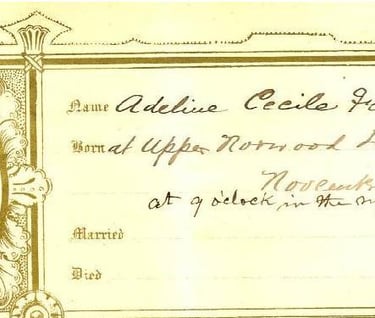 Name Adeline Cecile
Born at Upper Norwood
at 9 o'clock in the
Married
Died